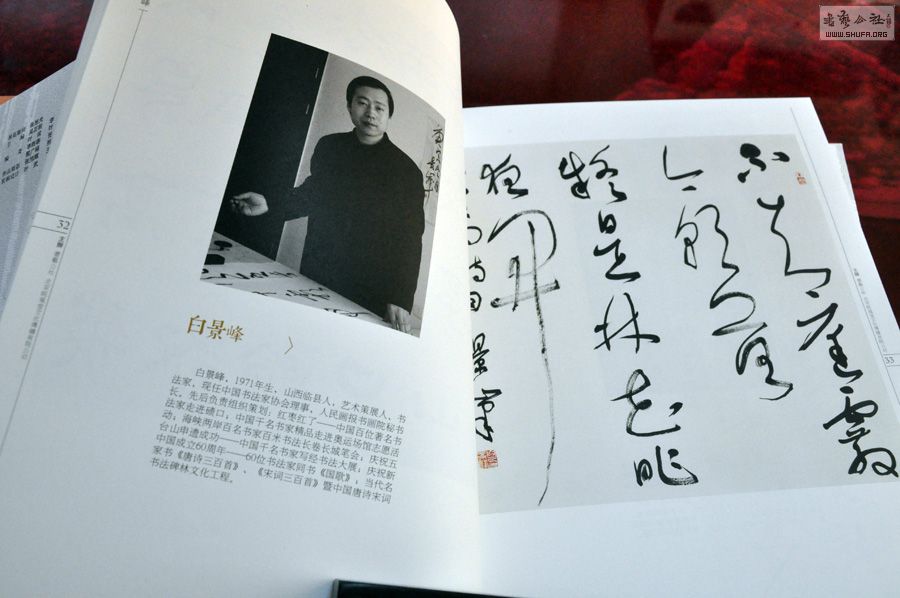 書艺公社
WWW.SHUFA.ORG
32
白景峰
白景峰，1971年生，山西临县人，艺术策展人，书
法家，现任中国书法家协会理事，人民画报书画院秘书
长，先后负责组织策划：红枣红了——中国百位著名书
法家走进碛口，中国千名书家精品走进奥运场馆志愿活
动；海峡两岸百名书家百米书法长卷长城笔会；庆祝五
台山申遗成功——中国千名书家写经书法大展；庆祝新
中国成立60周年——60位书法家同书《国歌》；当代名
家书《唐诗三百首》、《宋词三百首》暨中国唐诗宋词
书法碑林文化工程。
不知庭霰
今朝落
疑是林花昨
夜開
景峰
33